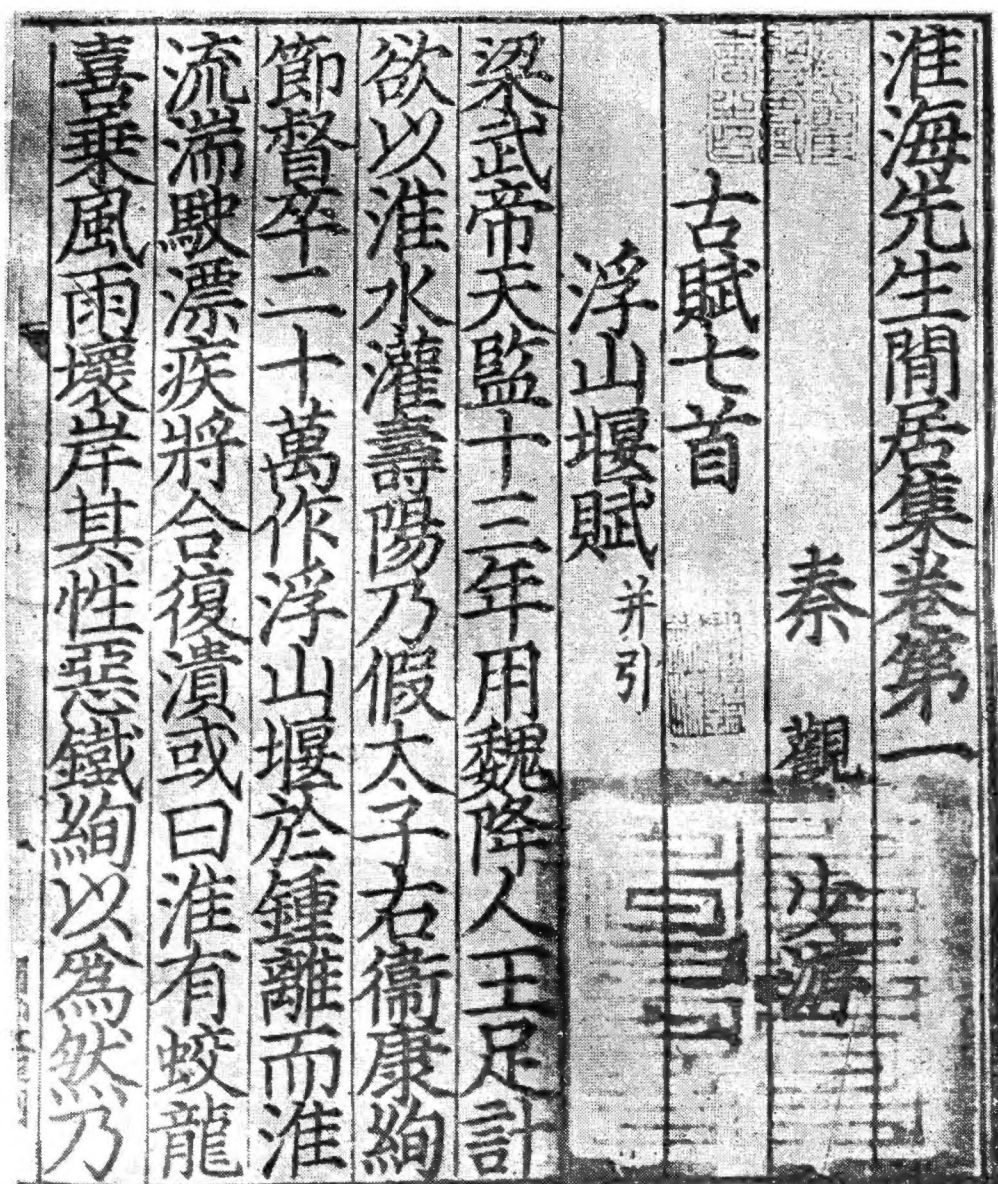 淮海先生閒居集卷第一
秦觀 少游
古賦七首
浮山堰賦 并引
梁武帝天監十三年用魏降人王足計
欲以淮水灌壽陽乃假太子右衞康絢
節督卒二十萬作浮山堰於鍾離而淮
流湍駛漂疾將合復潰或曰淮有蛟龍
喜乗風雨壞岸其性惡鐵絢以爲然乃